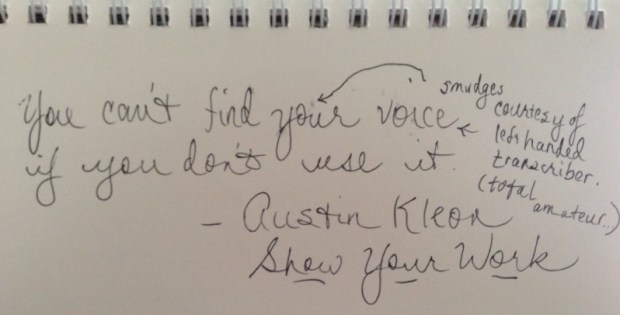 You can't find your voice
if you don't use it.
- Austin Kleon
Show Your Work
smudges
courtesy of
left handed
transcriber.
(total
amateur...)